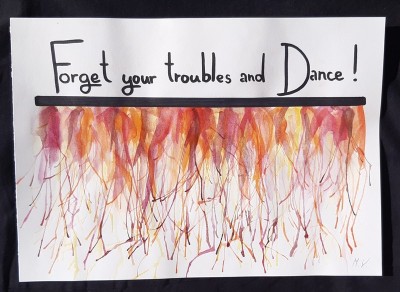 Forget your troubles and Dance !
M V